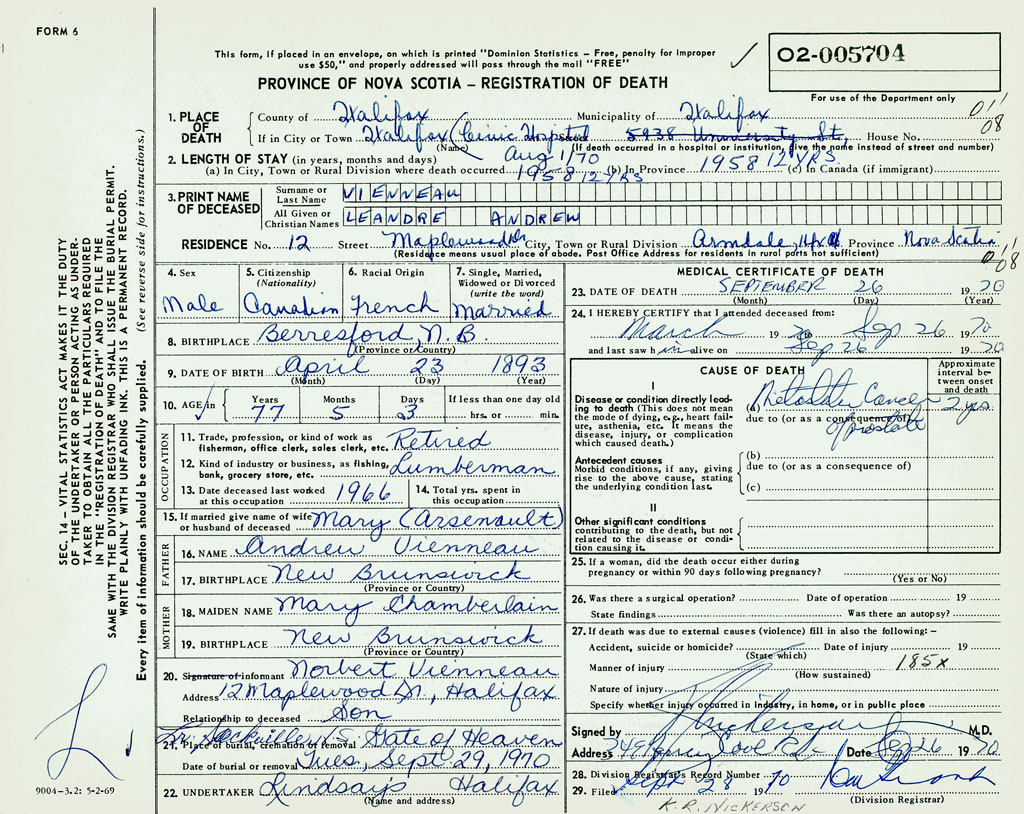 FORM 6
This form, if placed in an envelope, on which is printed "Dominion Statistics – Free, penalty for improper
use $50," and properly addressed will pass through the mail "FREE"
PROVINCE OF NOVA SCOTIA – REGISTRATION OF DEATH
02-005704
For use of the Department only
SEC. 14 – VITAL STATISTICS ACT MAKES IT THE DUTY
OF THE UNDERTAKER OR PERSON ACTING AS UNDER-
TAKER TO OBTAIN ALL THE PARTICULARS REQUIRED
IN THE "REGISTRATION OF DEATH" AND TO FILE THE
SAME WITH THE DIVISION REGISTRAR WHO SHALL ISSUE THE BURIAL PERMIT.
WRITE PLAINLY WITH UNFADING INK. THIS IS A PERMANENT RECORD.
Every item of information should be carefully supplied. (See reverse side for instructions.)
1. PLACE OF DEATH
County of Halifax Municipality of Halifax 011
08
If in City or Town Halifax (Civic Hospital 5938 University St, House No.
(Name) (If death occurred in a hospital or institution, give the name instead of street and number)
2. LENGTH OF STAY (in years, months and days) Aug 1/70
(a) In City, Town or Rural Division where death occurred 1958 12 YRS (b) In Province 1958 12 YRS (c) In Canada (if immigrant)
3. PRINT NAME OF DECEASED
Surname or Last Name VIENNEAU
All Given or Christian Names LEANDRE ANDREW
RESIDENCE No. 12 Street Maplewood Dr City, Town or Rural Division Armdale, Hfx Co Province Nova Scotia 011
08
(Residence means usual place of abode. Post Office Address for residents in rural parts not sufficient)
4. Sex Male
5. Citizenship (Nationality) Canadian
6. Racial Origin French
7. Single, Married, Widowed or Divorced (write the word) Married
8. BIRTHPLACE Berresford, N.B.
(Province or Country)
9. DATE OF BIRTH April 23 1893
(Month) (Day) (Year)
10. AGE in Years 77 Months 5 Days 3 If less than one day old hrs. or min.
OCCUPATION
11. Trade, profession, or kind of work as fisherman, office clerk, sales clerk, etc. Retired
12. Kind of industry or business, as fishing, bank, grocery store, etc. Lumberman
13. Date deceased last worked at this occupation 1966
14. Total yrs. spent in this occupation
15. If married give name of wife or husband of deceased Mary (Arsenault)
FATHER
16. NAME Andrew Vienneau
17. BIRTHPLACE New Brunswick
(Province or Country)
MOTHER
18. MAIDEN NAME Mary Chamberlain
19. BIRTHPLACE New Brunswick
(Province or Country)
20. Signature of informant Norbert Vienneau
Address 12 Maplewood Dr, Halifax
Relationship to deceased Son
Lr. Sackville, N.S.
21. Place of burial, cremation or removal Gate of Heaven
Date of burial or removal Tues, Sept. 29, 1970
22. UNDERTAKER Lindsays Halifax
(Name and address)
9004-3.2: 5-2-69
MEDICAL CERTIFICATE OF DEATH
23. DATE OF DEATH SEPTEMBER 26 1970
(Month) (Day) (Year)
24. I HEREBY CERTIFY that I attended deceased from:
March 1970 to Sep 26 1970
and last saw him alive on Sep 26 1970
CAUSE OF DEATH
Approximate interval between onset and death
I
Disease or condition directly leading to death (This does not mean the mode of dying, e.g., heart failure, asthenia, etc. It means the disease, injury, or complication which caused death.)
(a) Metastatic Cancer 2 yrs
due to (or as a consequence of)
of prostate
Antecedent causes
Morbid conditions, if any, giving rise to the above cause, stating the underlying condition last.
(b)
due to (or as a consequence of)
(c)
II
Other significant conditions
contributing to the death, but not related to the disease or condition causing it.
25. If a woman, did the death occur either during
pregnancy or within 90 days following pregnancy?
(Yes or No)
26. Was there a surgical operation? Date of operation 19
State findings Was there an autopsy?
27. If death was due to external causes (violence) fill in also the following: –
Accident, suicide or homicide? Date of injury 19
(State which)
Manner of injury 185x
(How sustained)
Nature of injury
Specify whether injury occurred in industry, in home, or in public place
Signed by Nickerson M.D.
Address Cove Rd Date Sep 26 1970
28. Division Registrar's Record Number
29. Filed Sept 28 1970
(Division Registrar)
K. R. NICKERSON